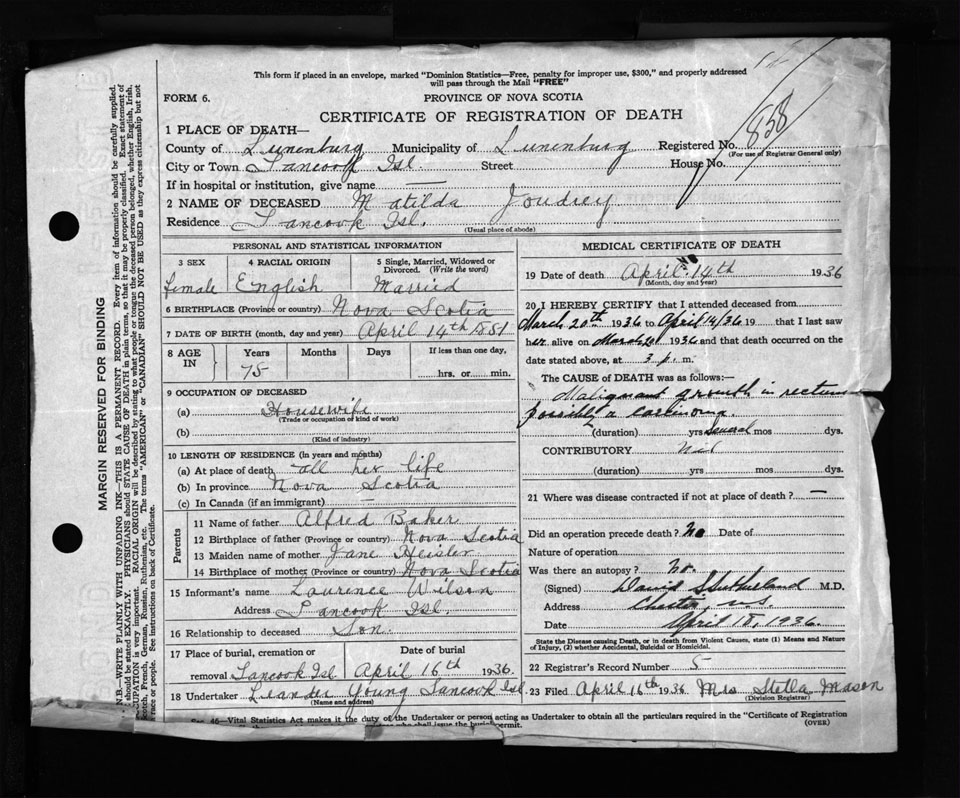 This form if placed in an envelope, marked "Dominion Statistics—Free, penalty for improper use, $300," and properly addressed
will pass through the Mail "FREE"
FORM 6.
PROVINCE OF NOVA SCOTIA
CERTIFICATE OF REGISTRATION OF DEATH
838
1 PLACE OF DEATH—
County of Lunenburg Municipality of Lunenburg Registered No.
(For use of Registrar General only)
City or Town Tancook Isl. Street House No.
If in hospital or institution, give name —
2 NAME OF DECEASED Matilda Joudrey
Residence Tancook Isl.
(Usual place of abode)
PERSONAL AND STATISTICAL INFORMATION
3 SEX 4 RACIAL ORIGIN 5 Single, Married, Widowed or
Divorced. (Write the word)
female English Married
6 BIRTHPLACE (Province or country) Nova Scotia
7 DATE OF BIRTH (month, day and year) April 14th 1861
8 AGE IN Years Months Days If less than one day,
75 hrs. or min.
9 OCCUPATION OF DECEASED
(a) Housewife
(Trade or occupation or kind of work)
(b)
(Kind of industry)
10 LENGTH OF RESIDENCE (in years and months)
(a) At place of death all her life
(b) In province Nova Scotia
(c) In Canada (if an immigrant) —
Parents
11 Name of father Alfred Baker
12 Birthplace of father (Province or country) Nova Scotia
13 Maiden name of mother Jane Heisler
14 Birthplace of mother (Province or country) Nova Scotia
15 Informant's name Laurence Wilson
Address Tancook Isl.
16 Relationship to deceased Son.
17 Place of burial, cremation or Date of burial
removal Tancook Isl April 16th 1936.
18 Undertaker Leander Young Tancook Isl
(Name and address)
MEDICAL CERTIFICATE OF DEATH
19 Date of death April 14th 1936
(Month, day and year)
20 I HEREBY CERTIFY that I attended deceased from
March 20th 1936 to April 14/36 19 that I last saw
her alive on March 20 1936 and that death occurred on the
date stated above, at 3 p. m.
The CAUSE of DEATH was as follows:—
Malignant growth in rectum
possibly a carcinoma.
(duration) yrs several mos dys.
CONTRIBUTORY
(duration) yrs mos dys.
21 Where was disease contracted if not at place of death? —
Did an operation precede death? No Date of
Nature of operation
Was there an autopsy? No.
(Signed) David S Sutherland M.D.
Address Chester, N.S.
Date April 18, 1936.
State the Disease causing Death, or in death from Violent Causes, state (1) Means and Nature
of Injury, (2) whether Accidental, Suicidal or Homicidal.
22 Registrar's Record Number 5
23 Filed April 16th 1936 Mrs Stella Mason
(Division Registrar)
Sec. 46—Vital Statistics Act makes it the duty of the Undertaker or person acting as Undertaker to obtain all the particulars required in the "Certificate of Registration
shall issue the burial permit. (OVER)
MARGIN RESERVED FOR BINDING
N.B.—WRITE PLAINLY WITH UNFADING INK—THIS IS A PERMANENT RECORD. Every item of information should be carefully supplied.
AGE should be stated EXACTLY. PHYSICIANS should STATE CAUSE OF DEATH in plain terms, so that it may be properly classified. Exact statement of
OCCUPATION is very important. RACIAL ORIGIN will be described by stating to what people or tongue the deceased person belonged, whether English, Irish,
Scotch, French, German, Russian, Ruthenian, etc. The terms "AMERICAN" or "CANADIAN" SHOULD NOT BE USED as they express citizenship but not
race or people. See instructions on back of Certificate.